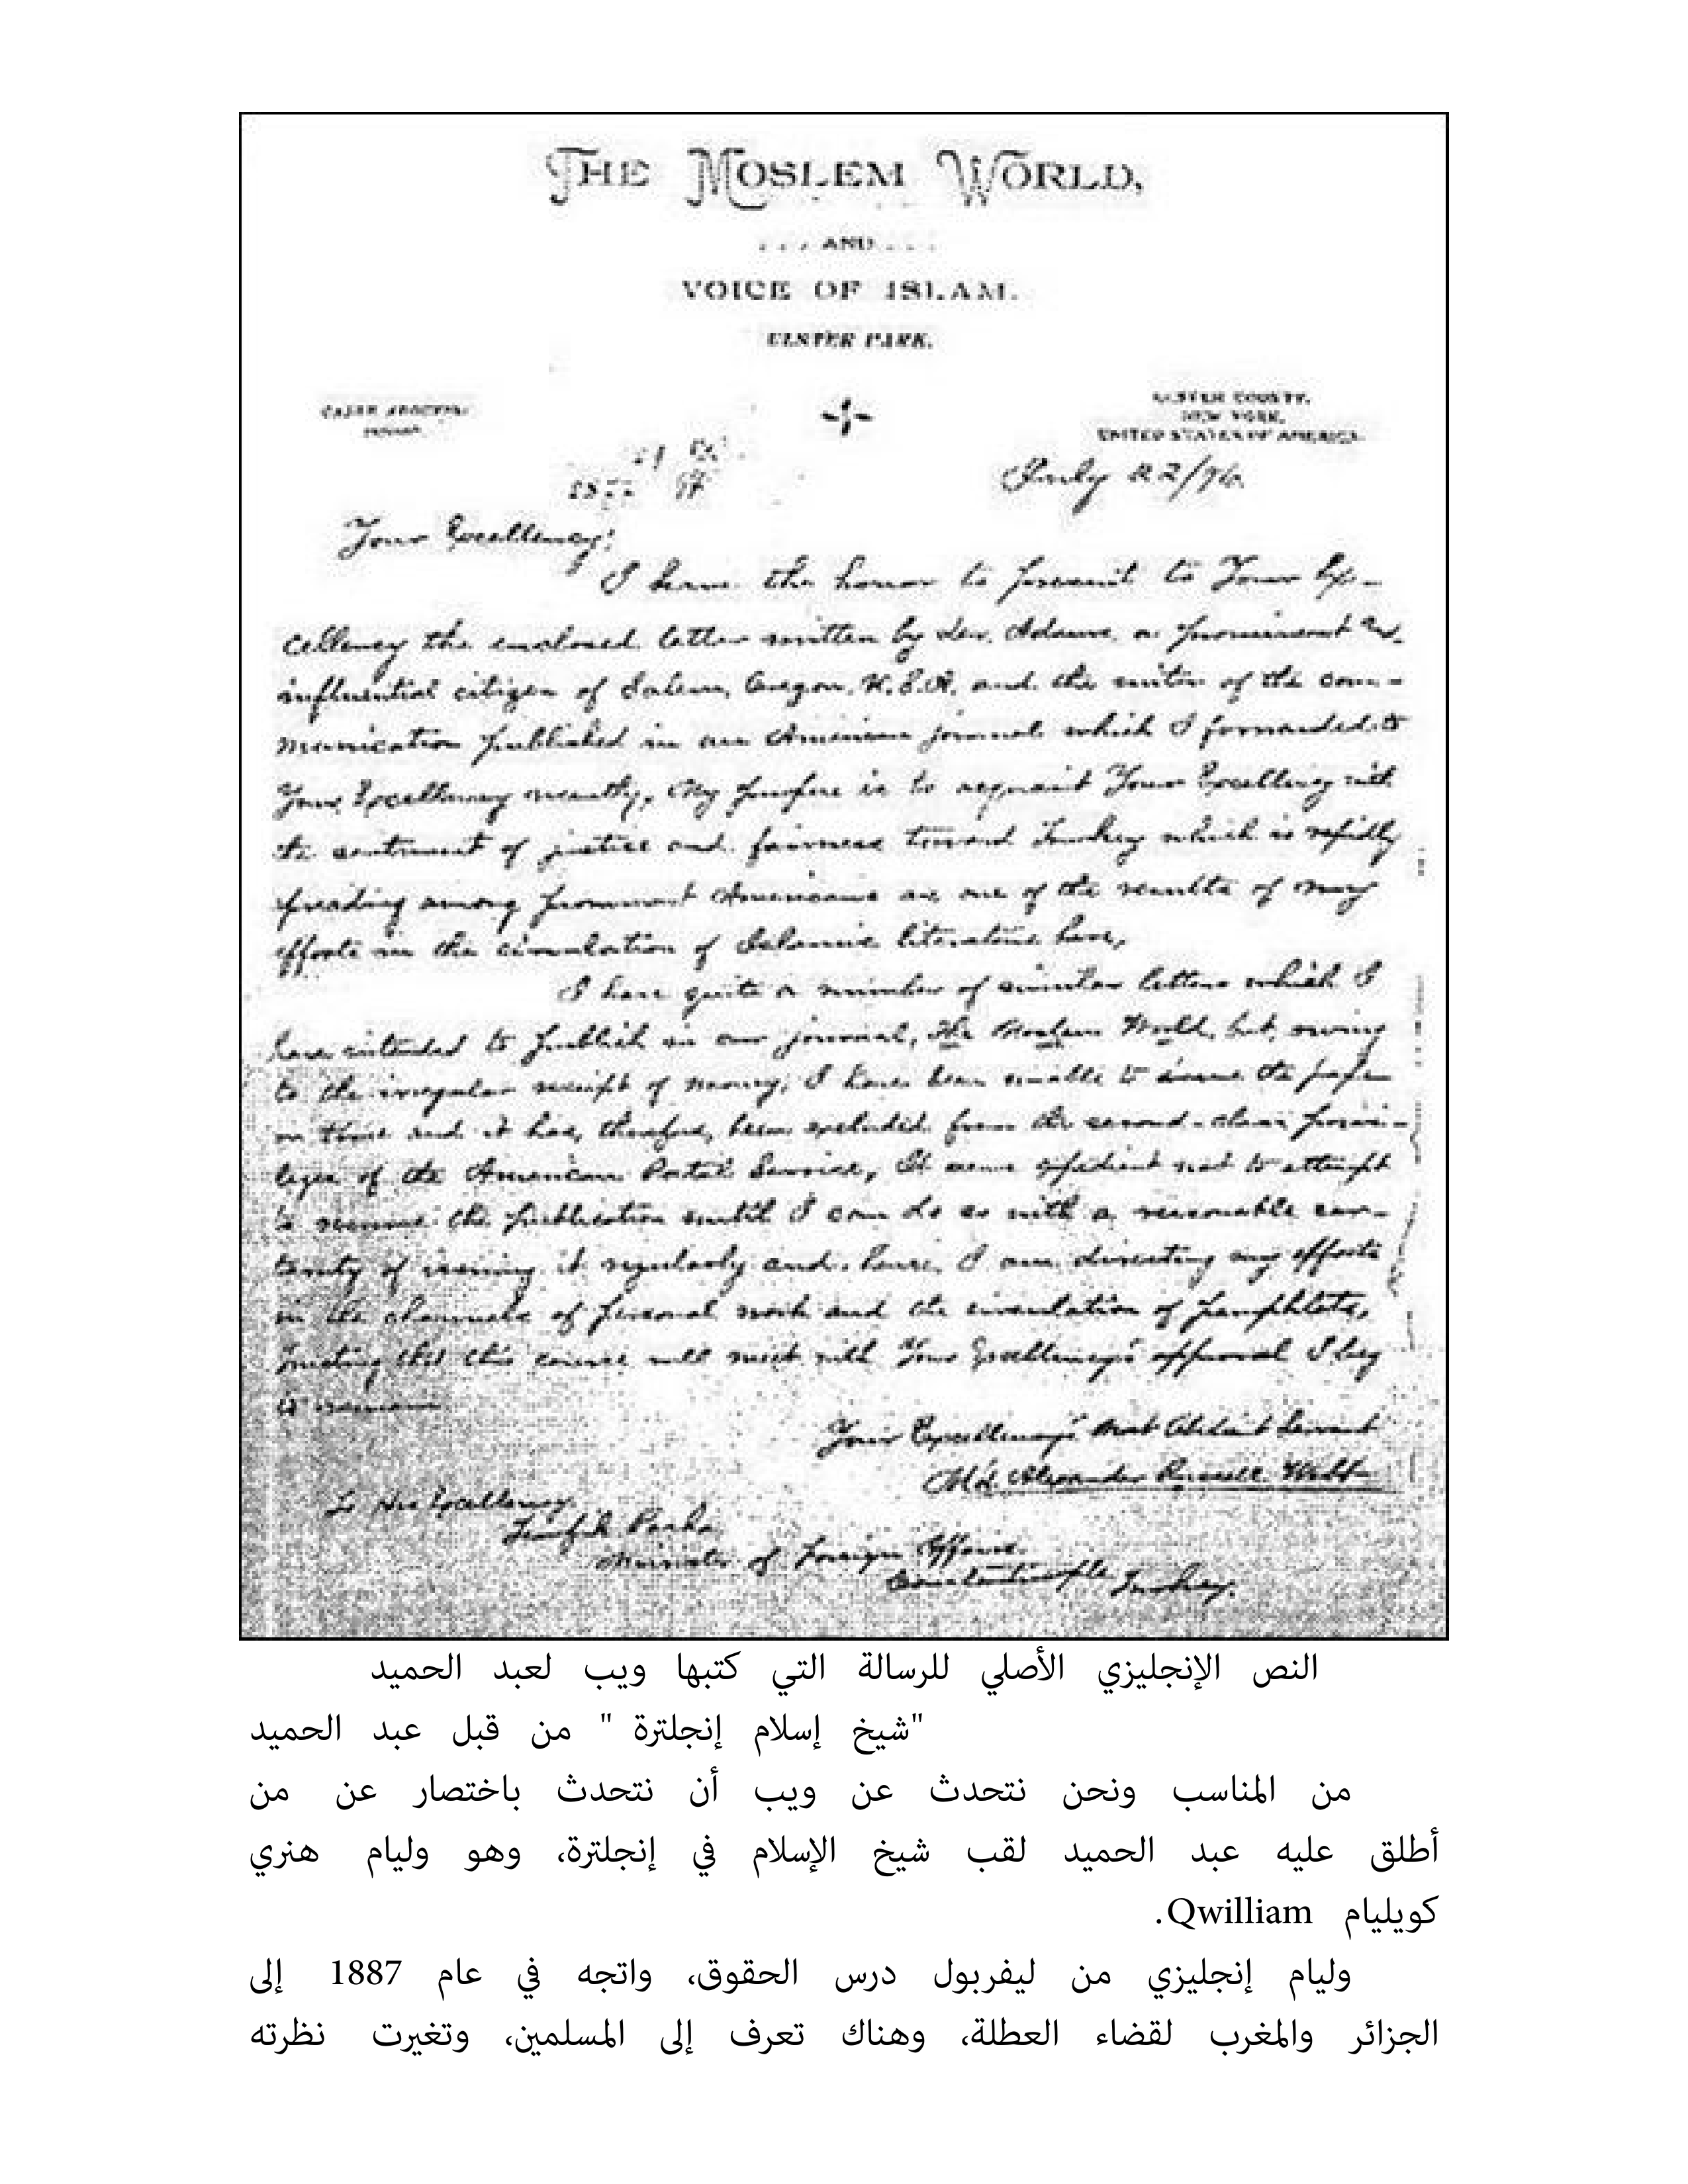 THE MOSLEM WORLD,
. . . AND . . .
VOICE OF ISLAM.
ULSTER PARK.
CABLE ADDRESS:
ULSTER COUNTY,
NEW YORK,
UNITED STATES OF AMERICA.
July 22/96.
Your Excellency:
I have the honor to present to Your Ex-
cellency the enclosed letter written by Adams, a prominent
influential citizen of Salem, Oregon, U.S.A. and the writer of the com-
munication published in an American journal which I forwarded to
Your Excellency recently. My purpose is to acquaint Your Excellency with
the sentiment of justice and fairness toward Turkey which is rapidly
spreading among prominent Americans as one of the results of my
efforts in the circulation of Islamic literature here.
I have quite a number of similar letters which I
have intended to publish in our journal, The Moslem World, but, owing
to the irregular receipt of money, I have been unable to issue the paper
on time and it has, therefore, been excluded from the second-class privi-
leges of the American Postal Service. It seems expedient not to attempt
to resume the publication until I can do so with a reasonable cer-
tainty of issuing it regularly and, hence, I am directing my efforts
in the channels of personal work and the circulation of pamphlets.
Trusting that this course will meet with Your Excellency's approval I beg
to remain
Your Excellency's Most Obedient Servant
Moh. Alexander Russell Webb
To His Excellency
Tewfik Pasha
Minister of Foreign Affairs
Constantinople Turkey.
النص الإنجليزي الأصلي للرسالة التي كتبها ويب لعبد الحميد
"شيخ إسلام إنجلترة " من قبل عبد الحميد
من المناسب ونحن نتحدث عن ويب أن نتحدث باختصار عن من
أطلق عليه عبد الحميد لقب شيخ الإسلام في إنجلترة، وهو وليام هنري
كويليام Qwilliam.
وليام إنجليزي من ليفربول درس الحقوق، واتجه في عام 1887 إلى
الجزائر والمغرب لقضاء العطلة، وهناك تعرف إلى المسلمين، وتغيرت نظرته